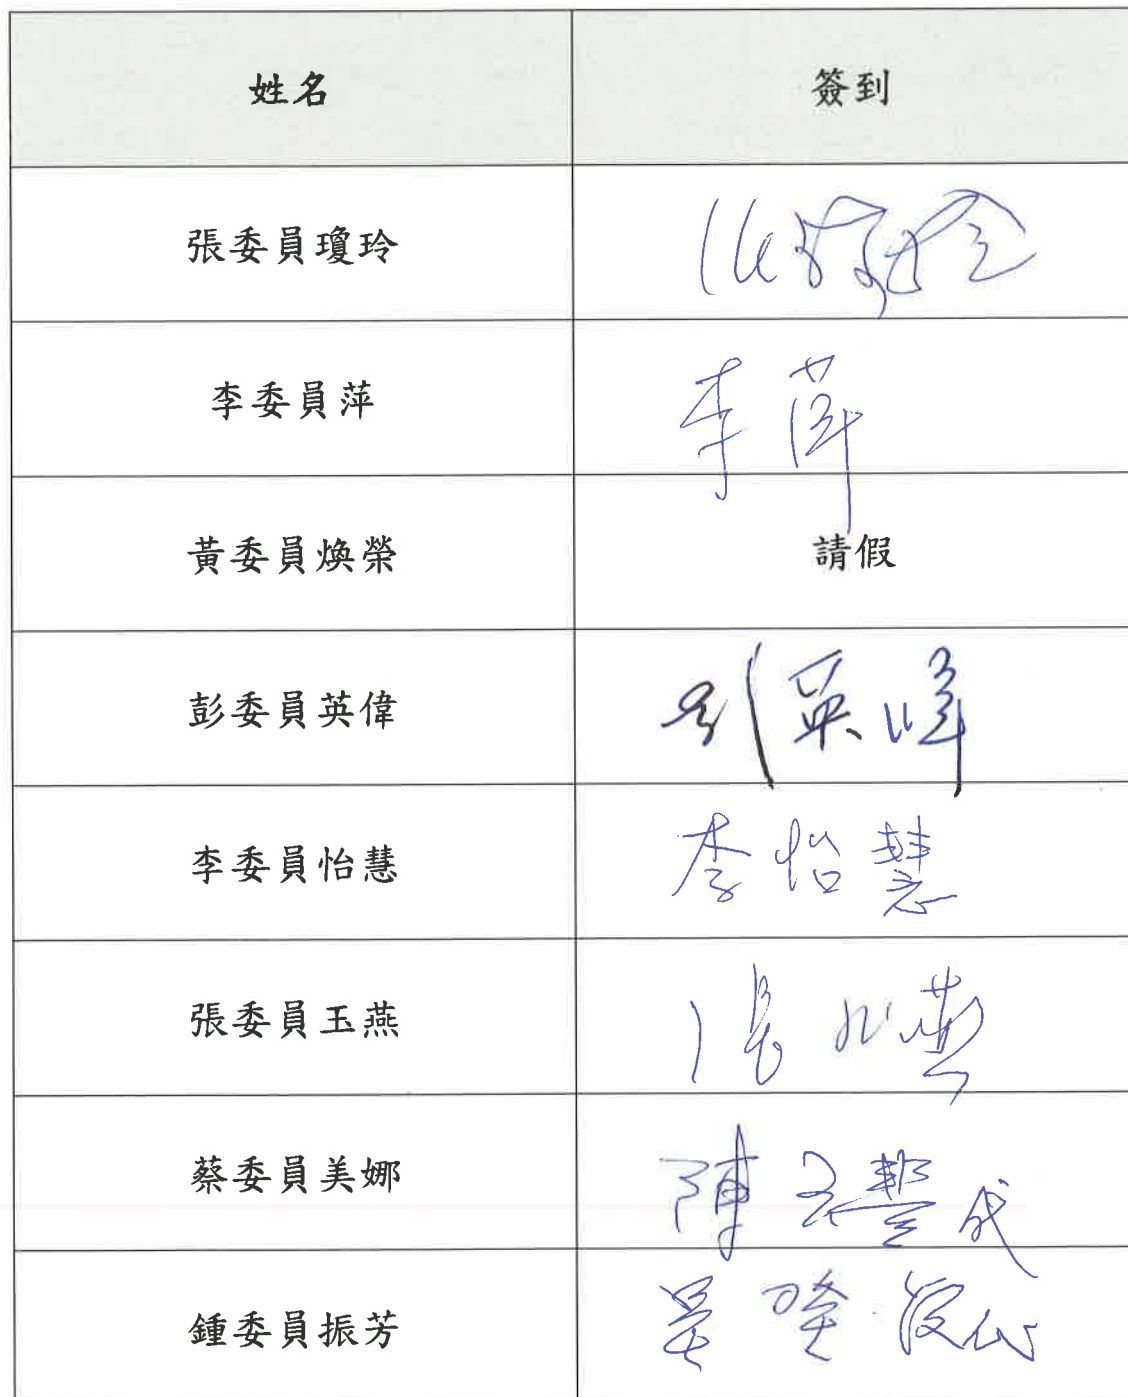 姓名 簽到
張委員瓊玲
李委員萍 李萍
黃委員煥榮 請假
彭委員英偉 彭英偉
李委員怡慧 李怡慧
張委員玉燕 張玉燕
蔡委員美娜 陳 代
鍾委員振芳 吳